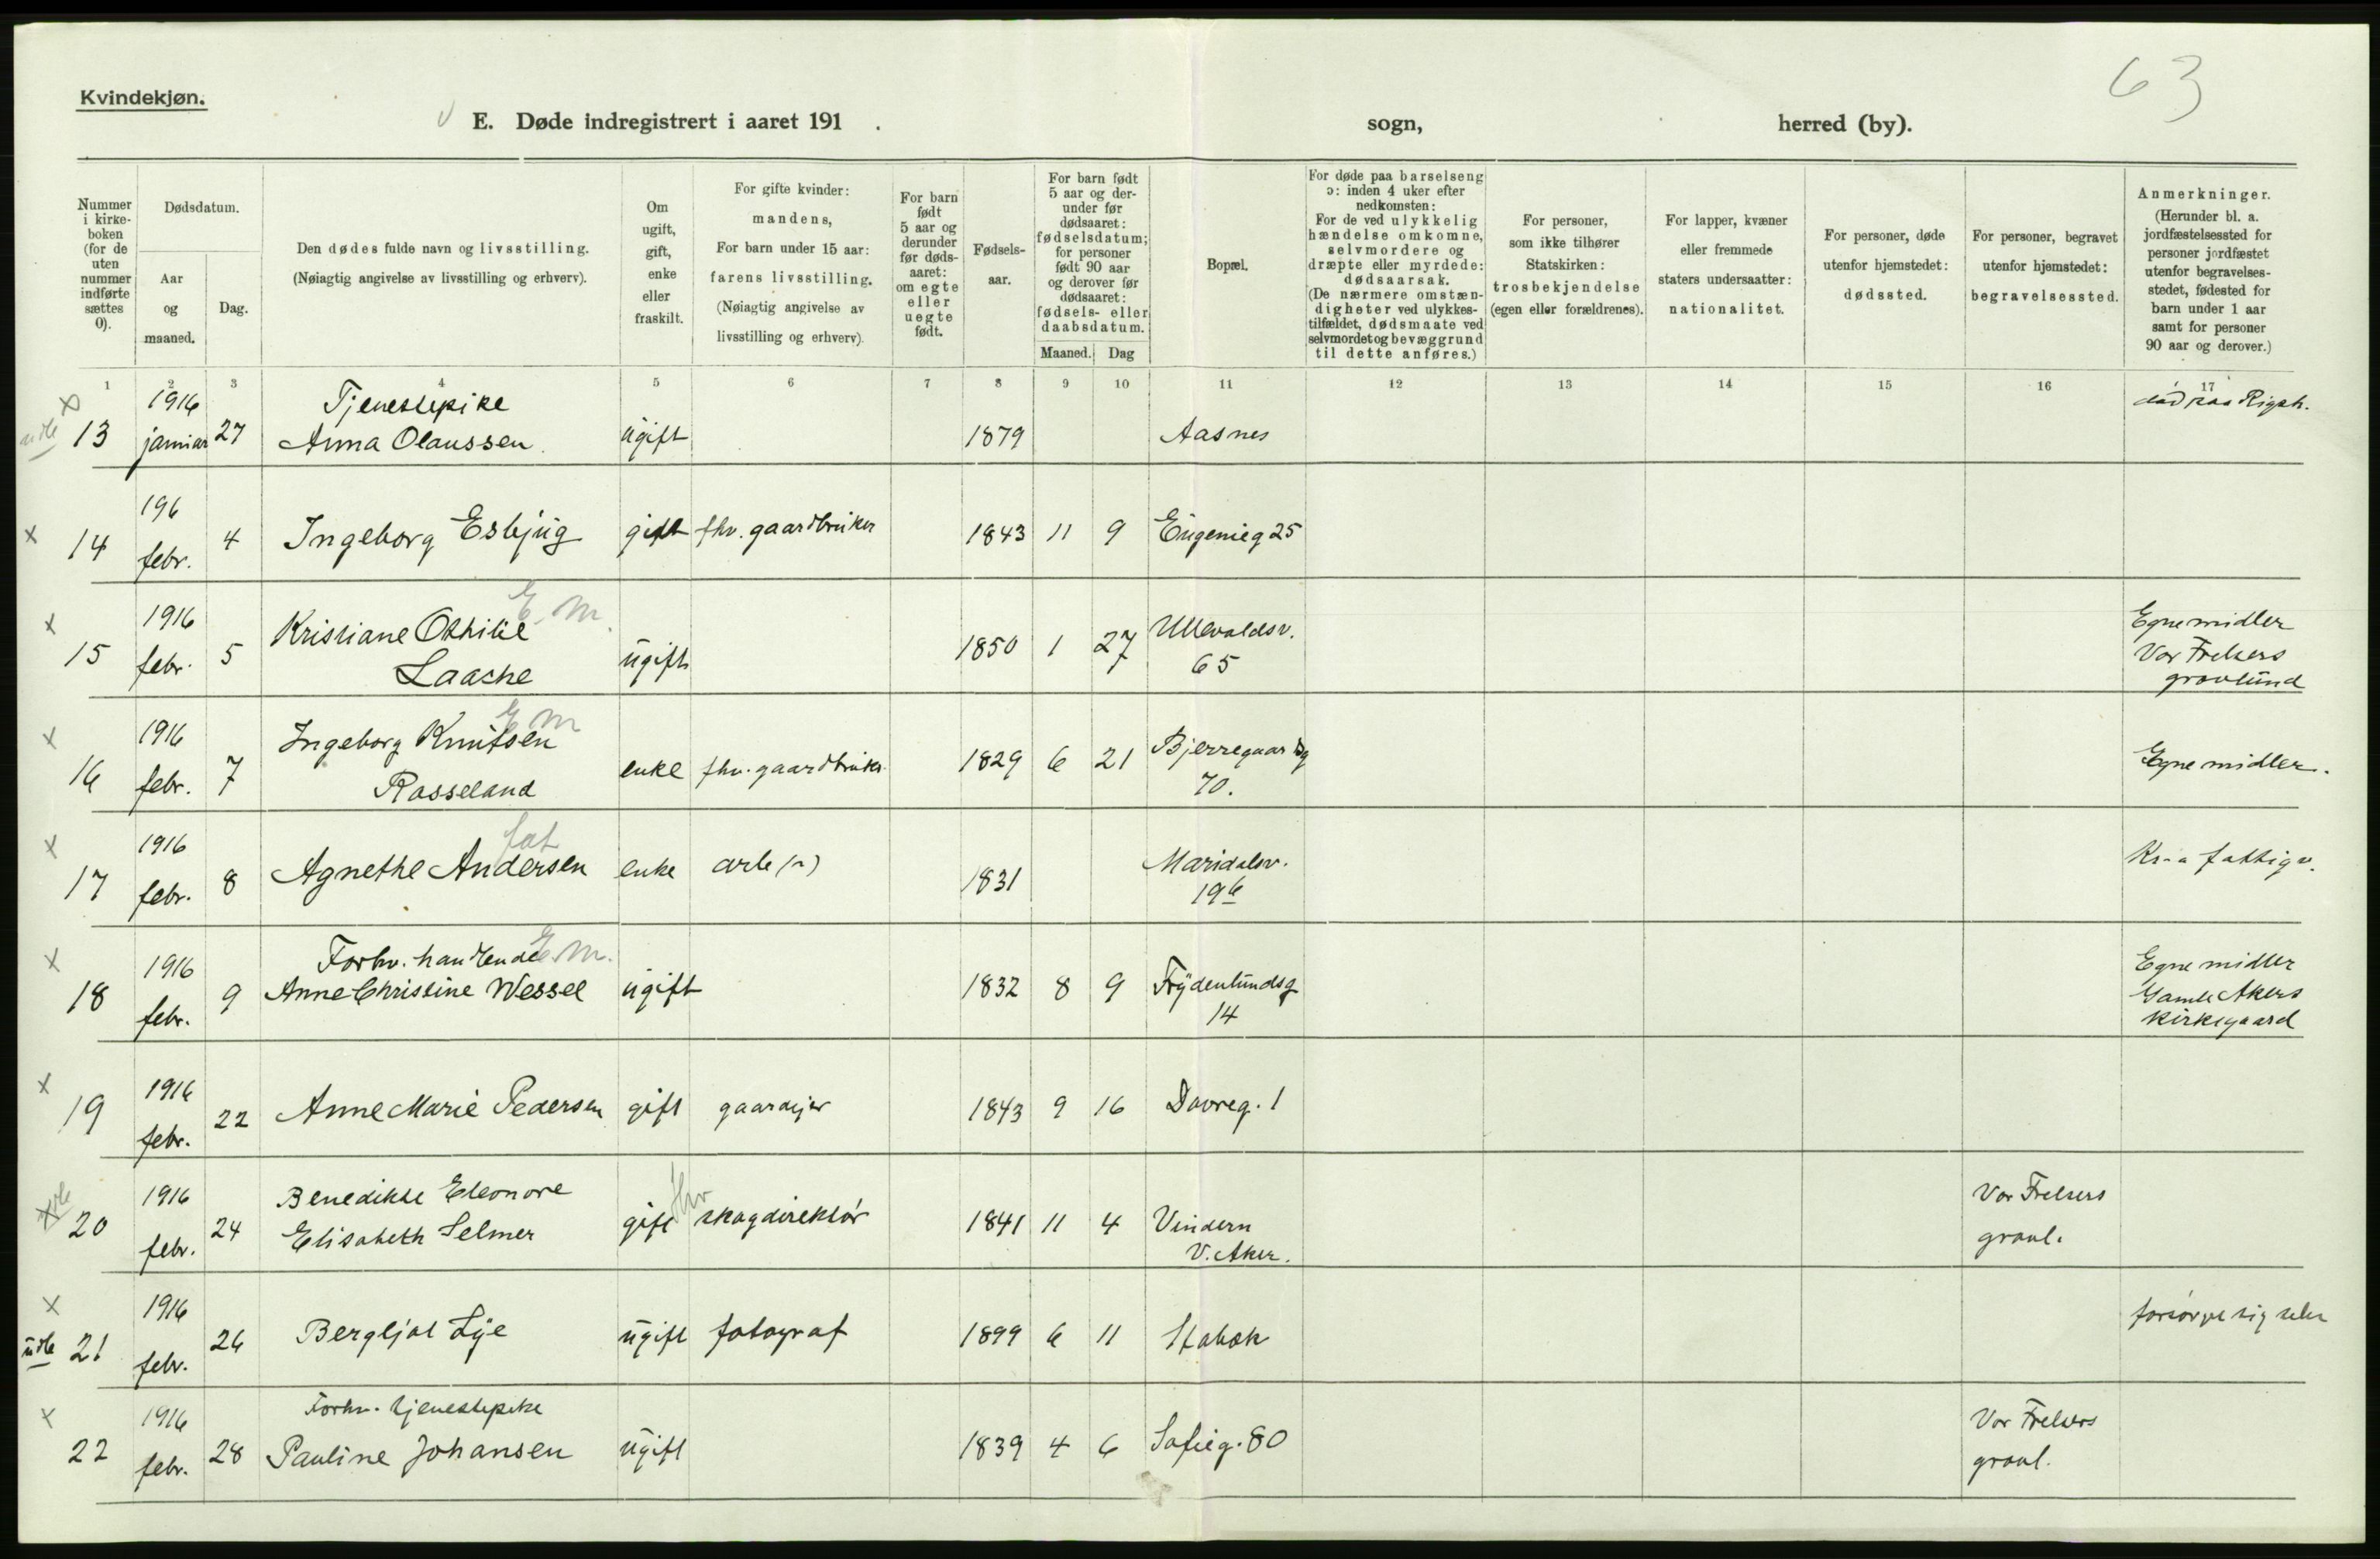 63
Kvindekjøn.
E. Døde indregistrert i aaret 191 . sogn, herred (by).
Nummer i kirke- boken (for de uten nummer indførte sættes 0).
Dødsdatum.
Aar og maaned.
Dag.
Den dødes fulde navn og livsstilling.
(Nøiagtig angivelse av livsstilling og erhverv).
Om ugift, gift, enke eller fraskilt.
For gifte kvinder: mandens, For barn under 15 aar: farens livsstilling. (Nøiagtig angivelse av livsstilling og erhverv).
For barn født 5 aar og derunder før døds- aaret: om egte eller uegte født.
Fødsels- aar.
For barn født 5 aar og der- under før dødsaaret: fødselsdatum; for personer født 90 aar og derover før dødsaaret: fødsels- eller daabsdatum.
Maaned. Dag
Bopæl.
For døde paa barselseng ɔ: inden 4 uker efter nedkomsten: For de ved ulykkelig hændelse omkomne, selvmordere og dræpte eller myrdede: dødsaarsak. (De nærmere omstæn- digheter ved ulykkes- tilfældet, dødsmaate ved selvmordet og bevæggrund til dette anføres.)
For personer, som ikke tilhører Statskirken: trosbekjendelse (egen eller forældrenes).
For lapper, kvæner eller fremmede staters undersaatter: nationalitet.
For personer, døde utenfor hjemstedet: dødssted.
For personer, begravet utenfor hjemstedet: begravelsessted.
Anmerkninger. (Herunder bl. a. jordfæstelsessted for personer jordfæstet utenfor begravelses- stedet, fødested for barn under 1 aar samt for personer 90 aar og derover.)
1 2 3 4 5 6 7 8 9 10 11 12 13 14 15 16 17
x 1916 Tjenestepike død paa Rigsh.
13 januar 27 Anna Olaussen. ugift 1879 Aasnes
x 196
14 febr. 4 Ingeborg Esbjug gift fhv. gaardbruker 1843 11 9 Eugenieg 25
E. M.
x 1916 Kristiane Othilie Ullevoldsv. Egne midler
15 febr. 5 Laache ugift 1850 1 27 65 Vor Frelsers
gravlund
E M
x 1916 Ingeborg Knutsen Bjerregaardsg
16 febr. 7 Rosseland enke fhv. gaardbruker 1829 6 21 70. Egne midler.
fat
x 1916
17 febr. 8 Agnethe Andersen enke arb (n) 1831 Maridalsv. Kr-a fattigv.
196
x 1916 Forhv. handlende E. M. Egne midler
18 febr. 9 Anne Christine Wessel ugift 1832 8 9 Frydenlundsg Gamle Akers
14 kirkegaard
x 1916
19 febr. 22 Anne Marie Pedersen gift gaardejer 1843 9 16 Dovreg. 1
1916 Benedikte Eleonore fhv Vor Frelsers
20 febr. 24 Elisabeth Selmer gift skogdirektør 1841 11 4 Vindern gravl.
V. Aker.
x 1916
utb 21 febr. 26 Bergljot Lye ugift fotograf 1899 6 11 Stabæk forsørget sig selv
x 1916 Forhv. tjenestepike Vor Frelsers
22 febr. 28 Pauline Johansen ugift 1839 4 6 Sofieg. 80 gravl.